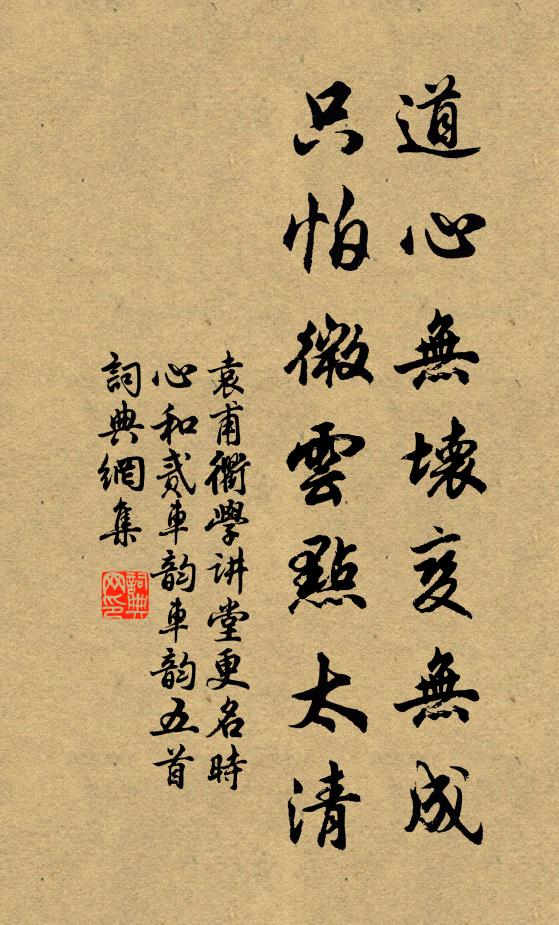 道心無壞亦無成
只怕微雲點太清
袁甫衢學讲堂更名時
心和貳車韵車韵五首
詞典網集
詞典网印